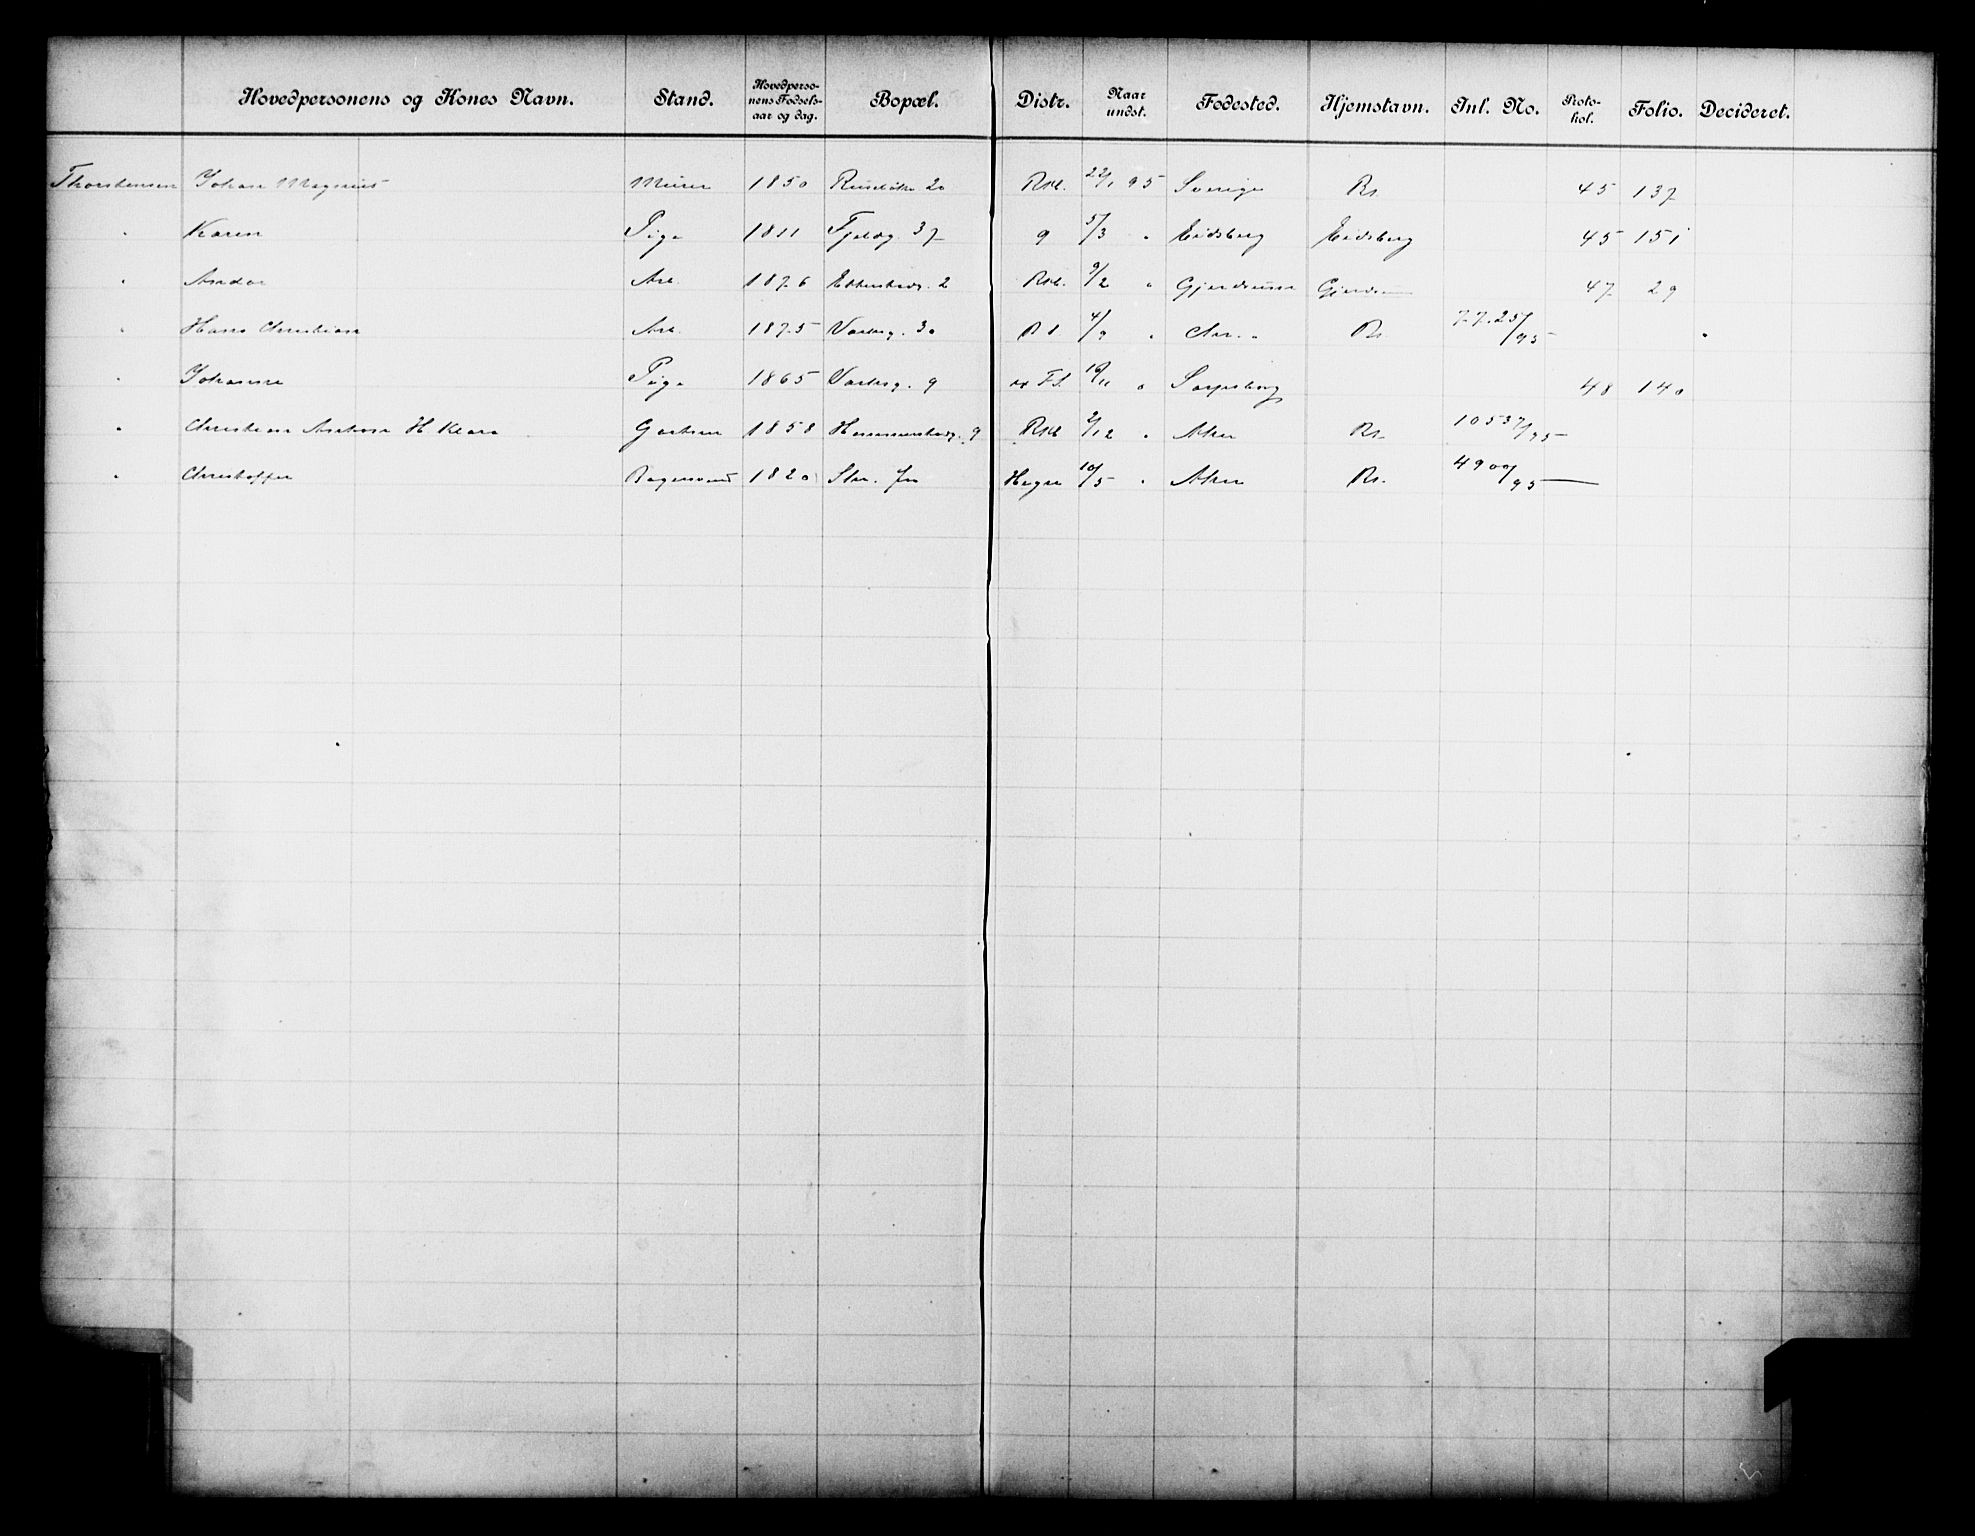 Hovedpersonens og Kones Navn. Stand. Hovedpersonens Fødselsaar og dag. Bopæl. Distr. Naar undst. Fødested. Hjemstavn. Inl. No. Protokol. Folio. Decideret.
Thorstensen Johan Magnus Murer 1850 Ruseløkv 20 Rskl. 22/1 95 Sverige Kr. 45 137
" Karen Pige 1811 Fjeldg. 37 9 5/3 " Eidsberg Eidsberg 45 151
" Andor Arb. 1876 Ekkersbdg. 2 Rskl. 9/2 " Gjerdrum Gjerdrum 47 29
" Hans Christian Arb. 1875 Vaterg. 30 4/9 " Chr.a Kr. 7725/95 "
" Johanne Pige 1865 Vaterg. 9 10/11 " Sarpsborg 48 140
" Christian Anton H Klara Gartner 1858 Hammersbdg. 9 Rskl 2/12 " Aker Kr. 10537/95
" Christoffer Bagersvend 1820 Str. fru Hagen 10/5 " Aker Kr. 4900/95